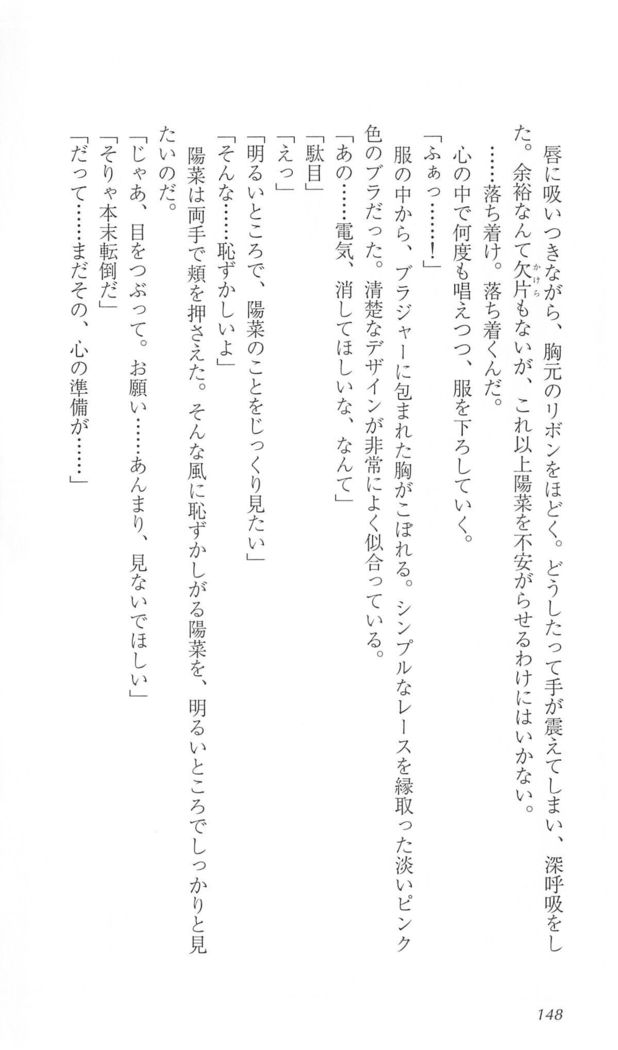 唇に吸いつきながら、胸元のリボンをほどく。どうしたって手が震えてしまい、深呼吸をし
た。余裕なんて欠片もないが、これ以上陽菜を不安がらせるわけにはいかない。
かけら
……落ち着け。落ち着くんだ。
心の中で何度も唱えつつ、服を下ろしていく。
「ふぁっ……！」
服の中から、ブラジャーに包まれた胸がこぼれる。シンプルなレースを縁取った淡いピンク
色のブラだった。清楚なデザインが非常によく似合っている。
「あの……電気、消してほしいな、なんて」
「駄目」
「えっ」
「明るいところで、陽菜のことをじっくり見たい」
「そんな……恥ずかしいよ」
陽菜は両手で頬を押さえた。そんな風に恥ずかしがる陽菜を、明るいところでしっかりと見
たいのだ。
「じゃあ、目をつぶって。お願い……あんまり、見ないでほしい」
「そりゃ本末転倒だ」
「だって……まだその、心の準備が……」
148